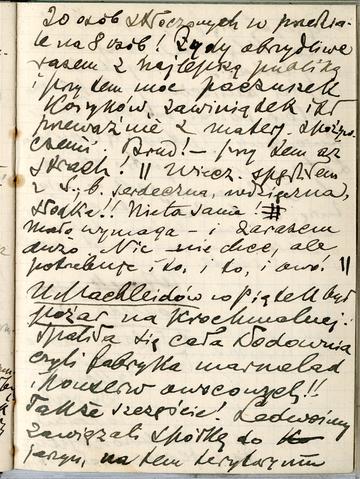 20 osób stłoczonych w przedzia-
le na 8 osób! Żydy obrzydliwe
razem z najlepszą publiką
i przy tem moc paczuszek
Koszyków, zawiniątek itd
przeważnie z mater. spożyw
czemi. Brud! – przy tem aż
strach! || Wiecz. spędziłem
z serdeczna, wdzięczna,
słodka!! Niefasana! #
mało wymaga – i zarazem
dużo Nic nie chce, ale
potrzebuje i to, i to, i owo! ||
U Machleidów w Piątek był
pożar na Krochmalnej!
Spaliła się cała Słodownia
czyli fabryka marmelad
i Konserw owocowych!!
Także szczęście. Ledwośmy
zawiązali spółkę do
na tem terytoryum